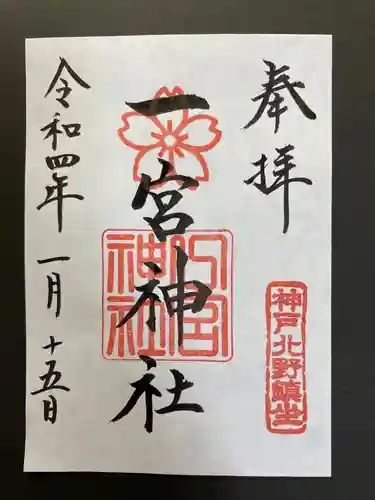 奉拝
神戸北野鎮坐
一宮神社
一宮神社
令和四年 一月 十五日